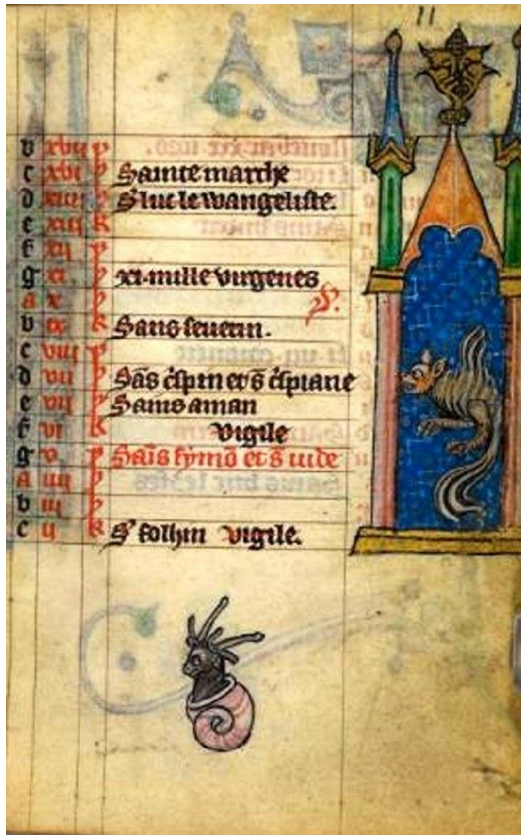 b xvii p
c xvi p Sainte marche
d p S' luc le wangeliste.
e xiiii k
f xii p
g xi p xi·mille virgenes
a x p S'.
b ix k Sans seuerin.
c viii p
d vii p Sãs c̃spin et s̃ c̃spiane
e vii p Sains aman
f vi k vigile
g v p Saĩs symõ et s̃ iude
a iiii p
b iii p
c ii k S' folhin vigile.